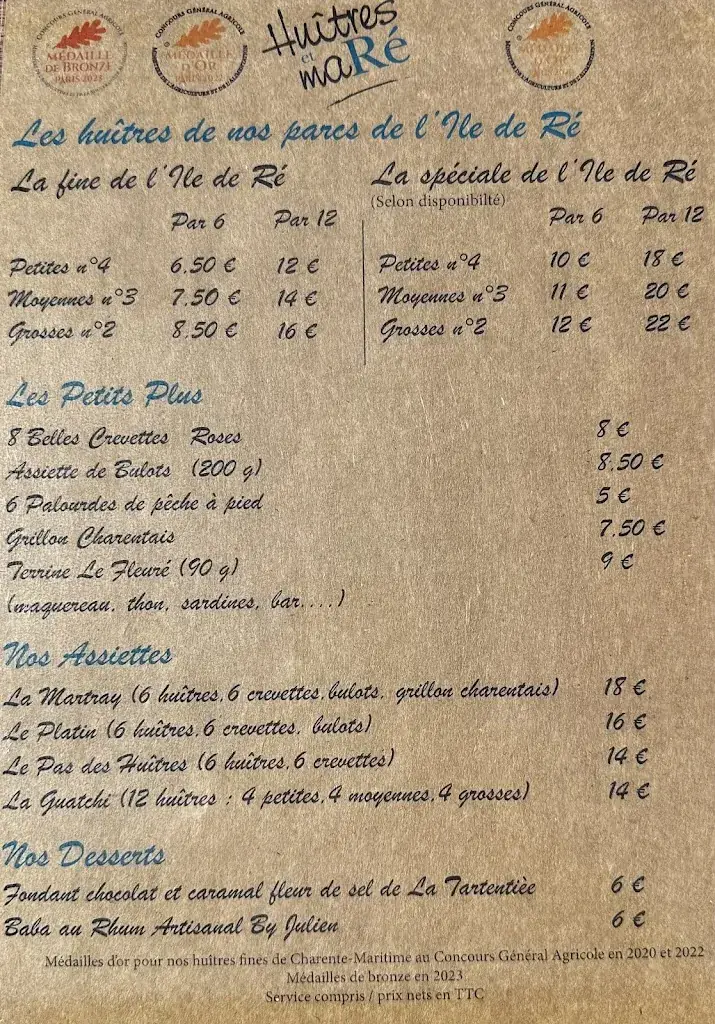 CONCOURS GÉNÉRAL AGRICOLE
MÉDAILLE
DE BRONZE
PARIS 2023
CONCOURS GÉNÉRAL AGRICOLE
MÉDAILLE
D'OR
PARIS 2022
Huîtres
et
maRé
CONCOURS GÉNÉRAL AGRICOLE
MÉDAILLE
D'OR
Les huîtres de nos parcs de l'Ile de Ré
La fine de l'Ile de Ré
Par 6 Par 12
Petites n°4 6.50 € 12 €
Moyennes n°3 7.50 € 14 €
Grosses n°2 8.50 € 16 €
La spéciale de l'Ile de Ré
(Selon disponibilté)
Par 6 Par 12
Petites n°4 10 € 18 €
Moyennes n°3 11 € 20 €
Grosses n°2 12 € 22 €
Les Petits Plus
8 Belles Crevettes Roses 8 €
Assiette de Bulots (200 g) 8.50 €
6 Palourdes de pêche à pied 5 €
Grillon Charentais 7.50 €
Terrine Le Fleuré (90 g) 9 €
(maquereau, thon, sardines, bar....)
Nos Assiettes
La Martray (6 huîtres,6 crevettes,bulots, grillon charentais) 18 €
Le Platin (6 huîtres,6 crevettes, bulots) 16 €
Le Pas des Huîtres (6 huîtres,6 crevettes) 14 €
La Guatchi (12 huîtres : 4 petites,4 moyennes,4 grosses) 14 €
Nos Desserts
Fondant chocolat et caramal fleur de sel de La Tartentièe 6 €
Baba au Rhum Artisanal By Julien 6 €
Médailles d'or pour nos huîtres fines de Charente-Maritime au Concours Général Agricole en 2020 et 2022
Médailles de bronze en 2023
Service compris / prix nets en TTC